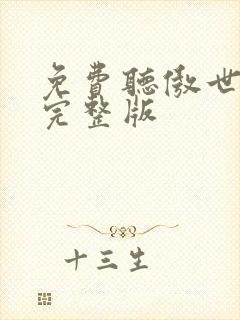 免費聽傲世
完整版
十三生